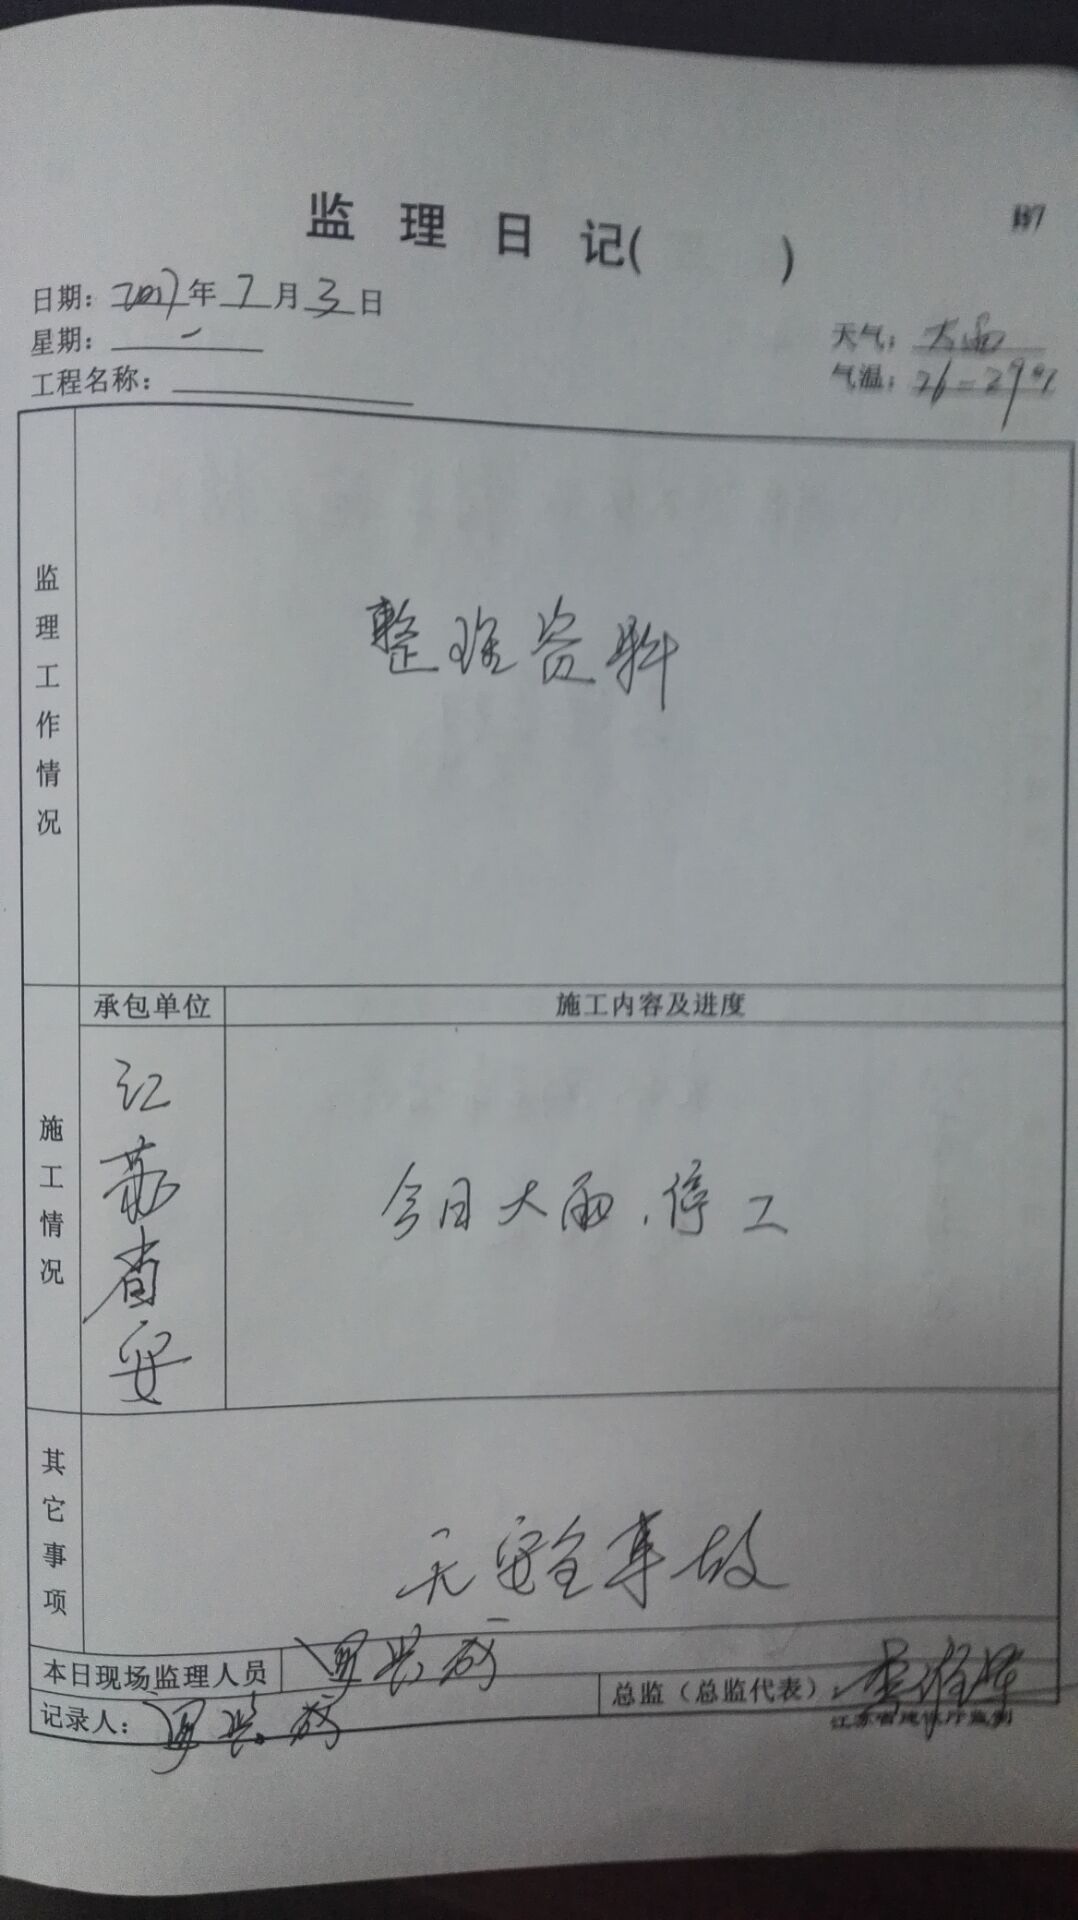 监理日记( )
日期：2017年7月3日
星期：一
天气：大雨
工程名称：
气温：26-29℃
监理工作情况
整理资料
施工情况
承包单位
施工内容及进度
江苏省安
今日大雨，停工
其它事项
无安全事故
本日现场监理人员
记录人：
总监（总监代表）
江苏省建设厅监制